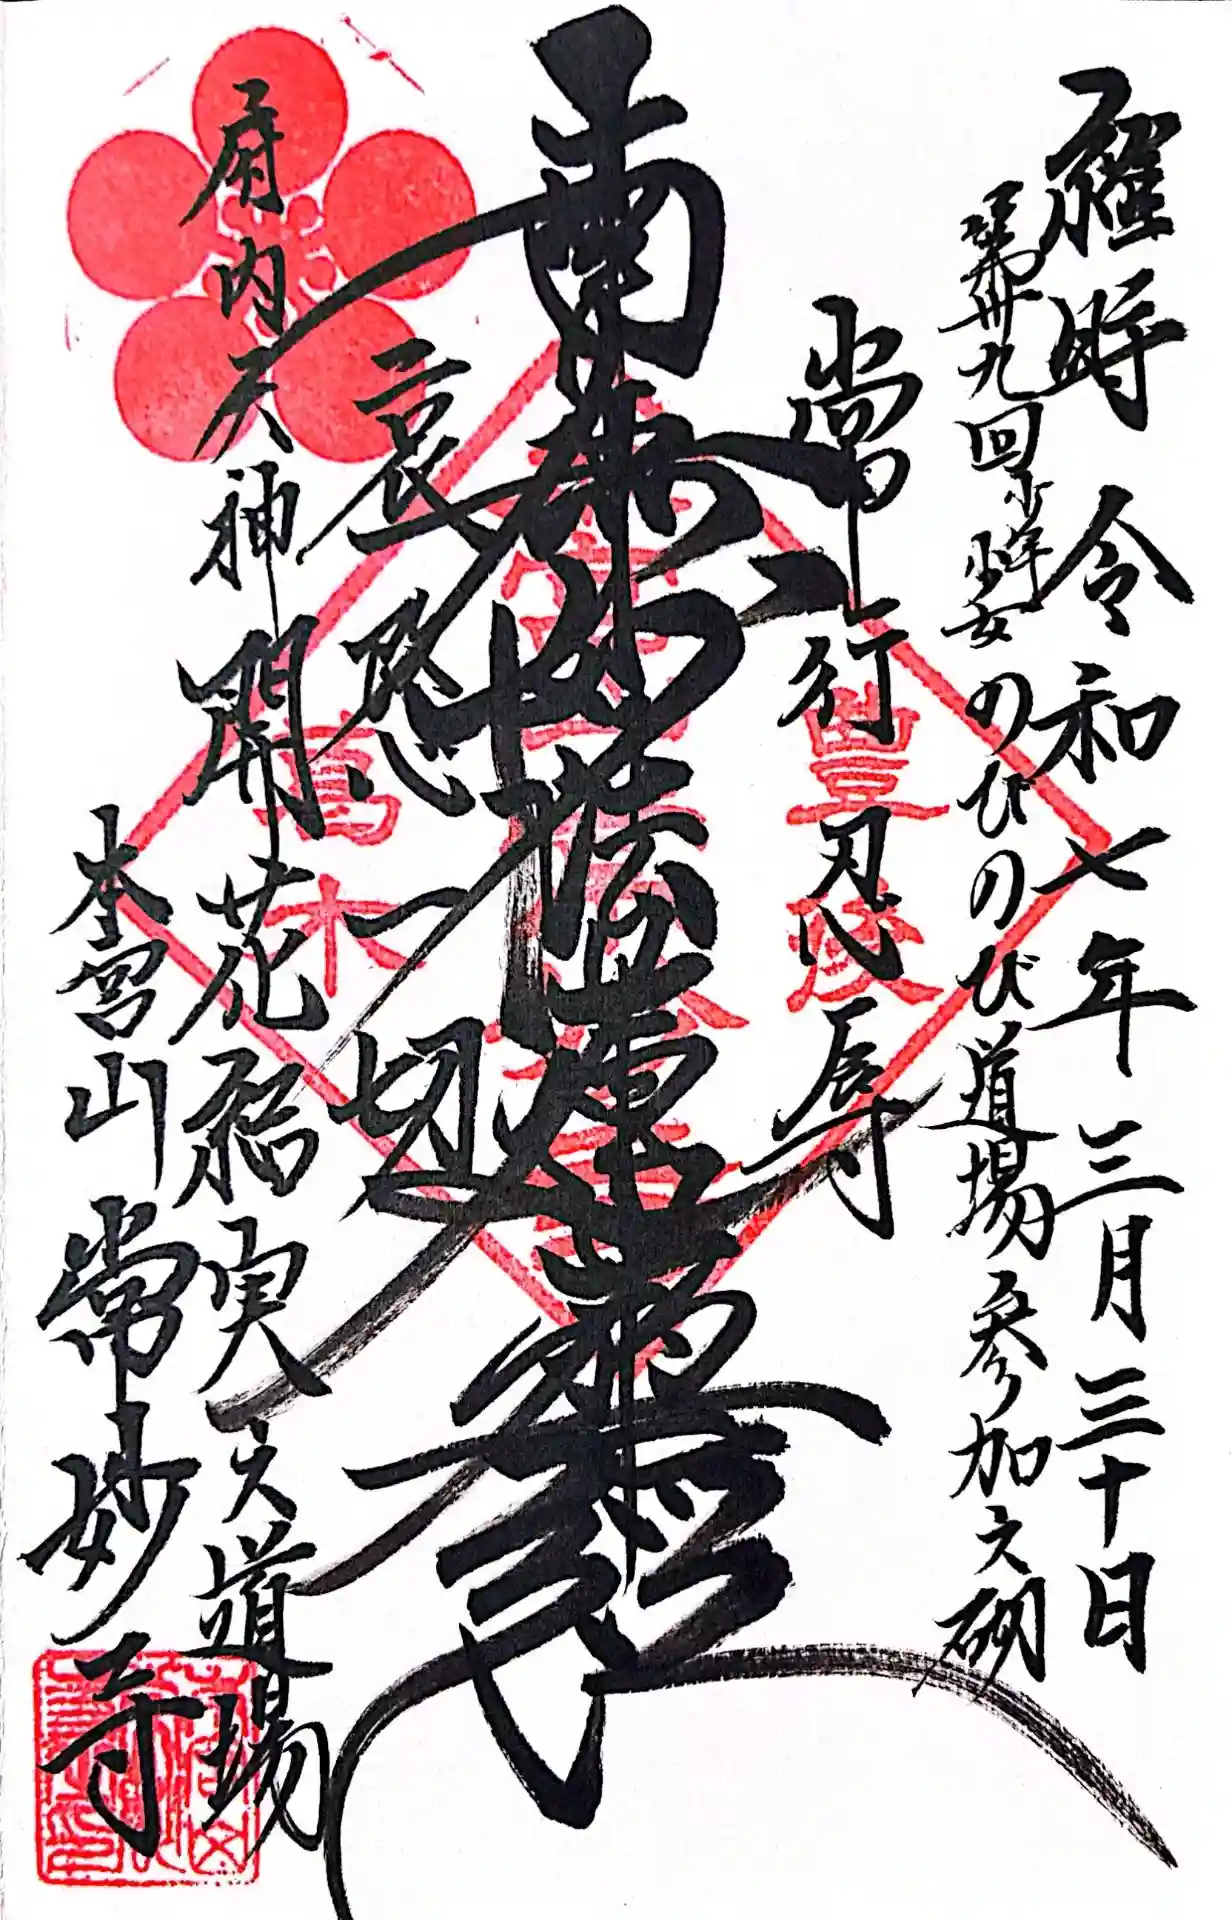 維時 令和七年三月三十日
第卅九回少年少女のびのび道場参加之砌
常行忍辱
豊後
南無妙法蓮華経
哀愍一切
葛木
府内天神開花結実之道場
本宮山常妙寺